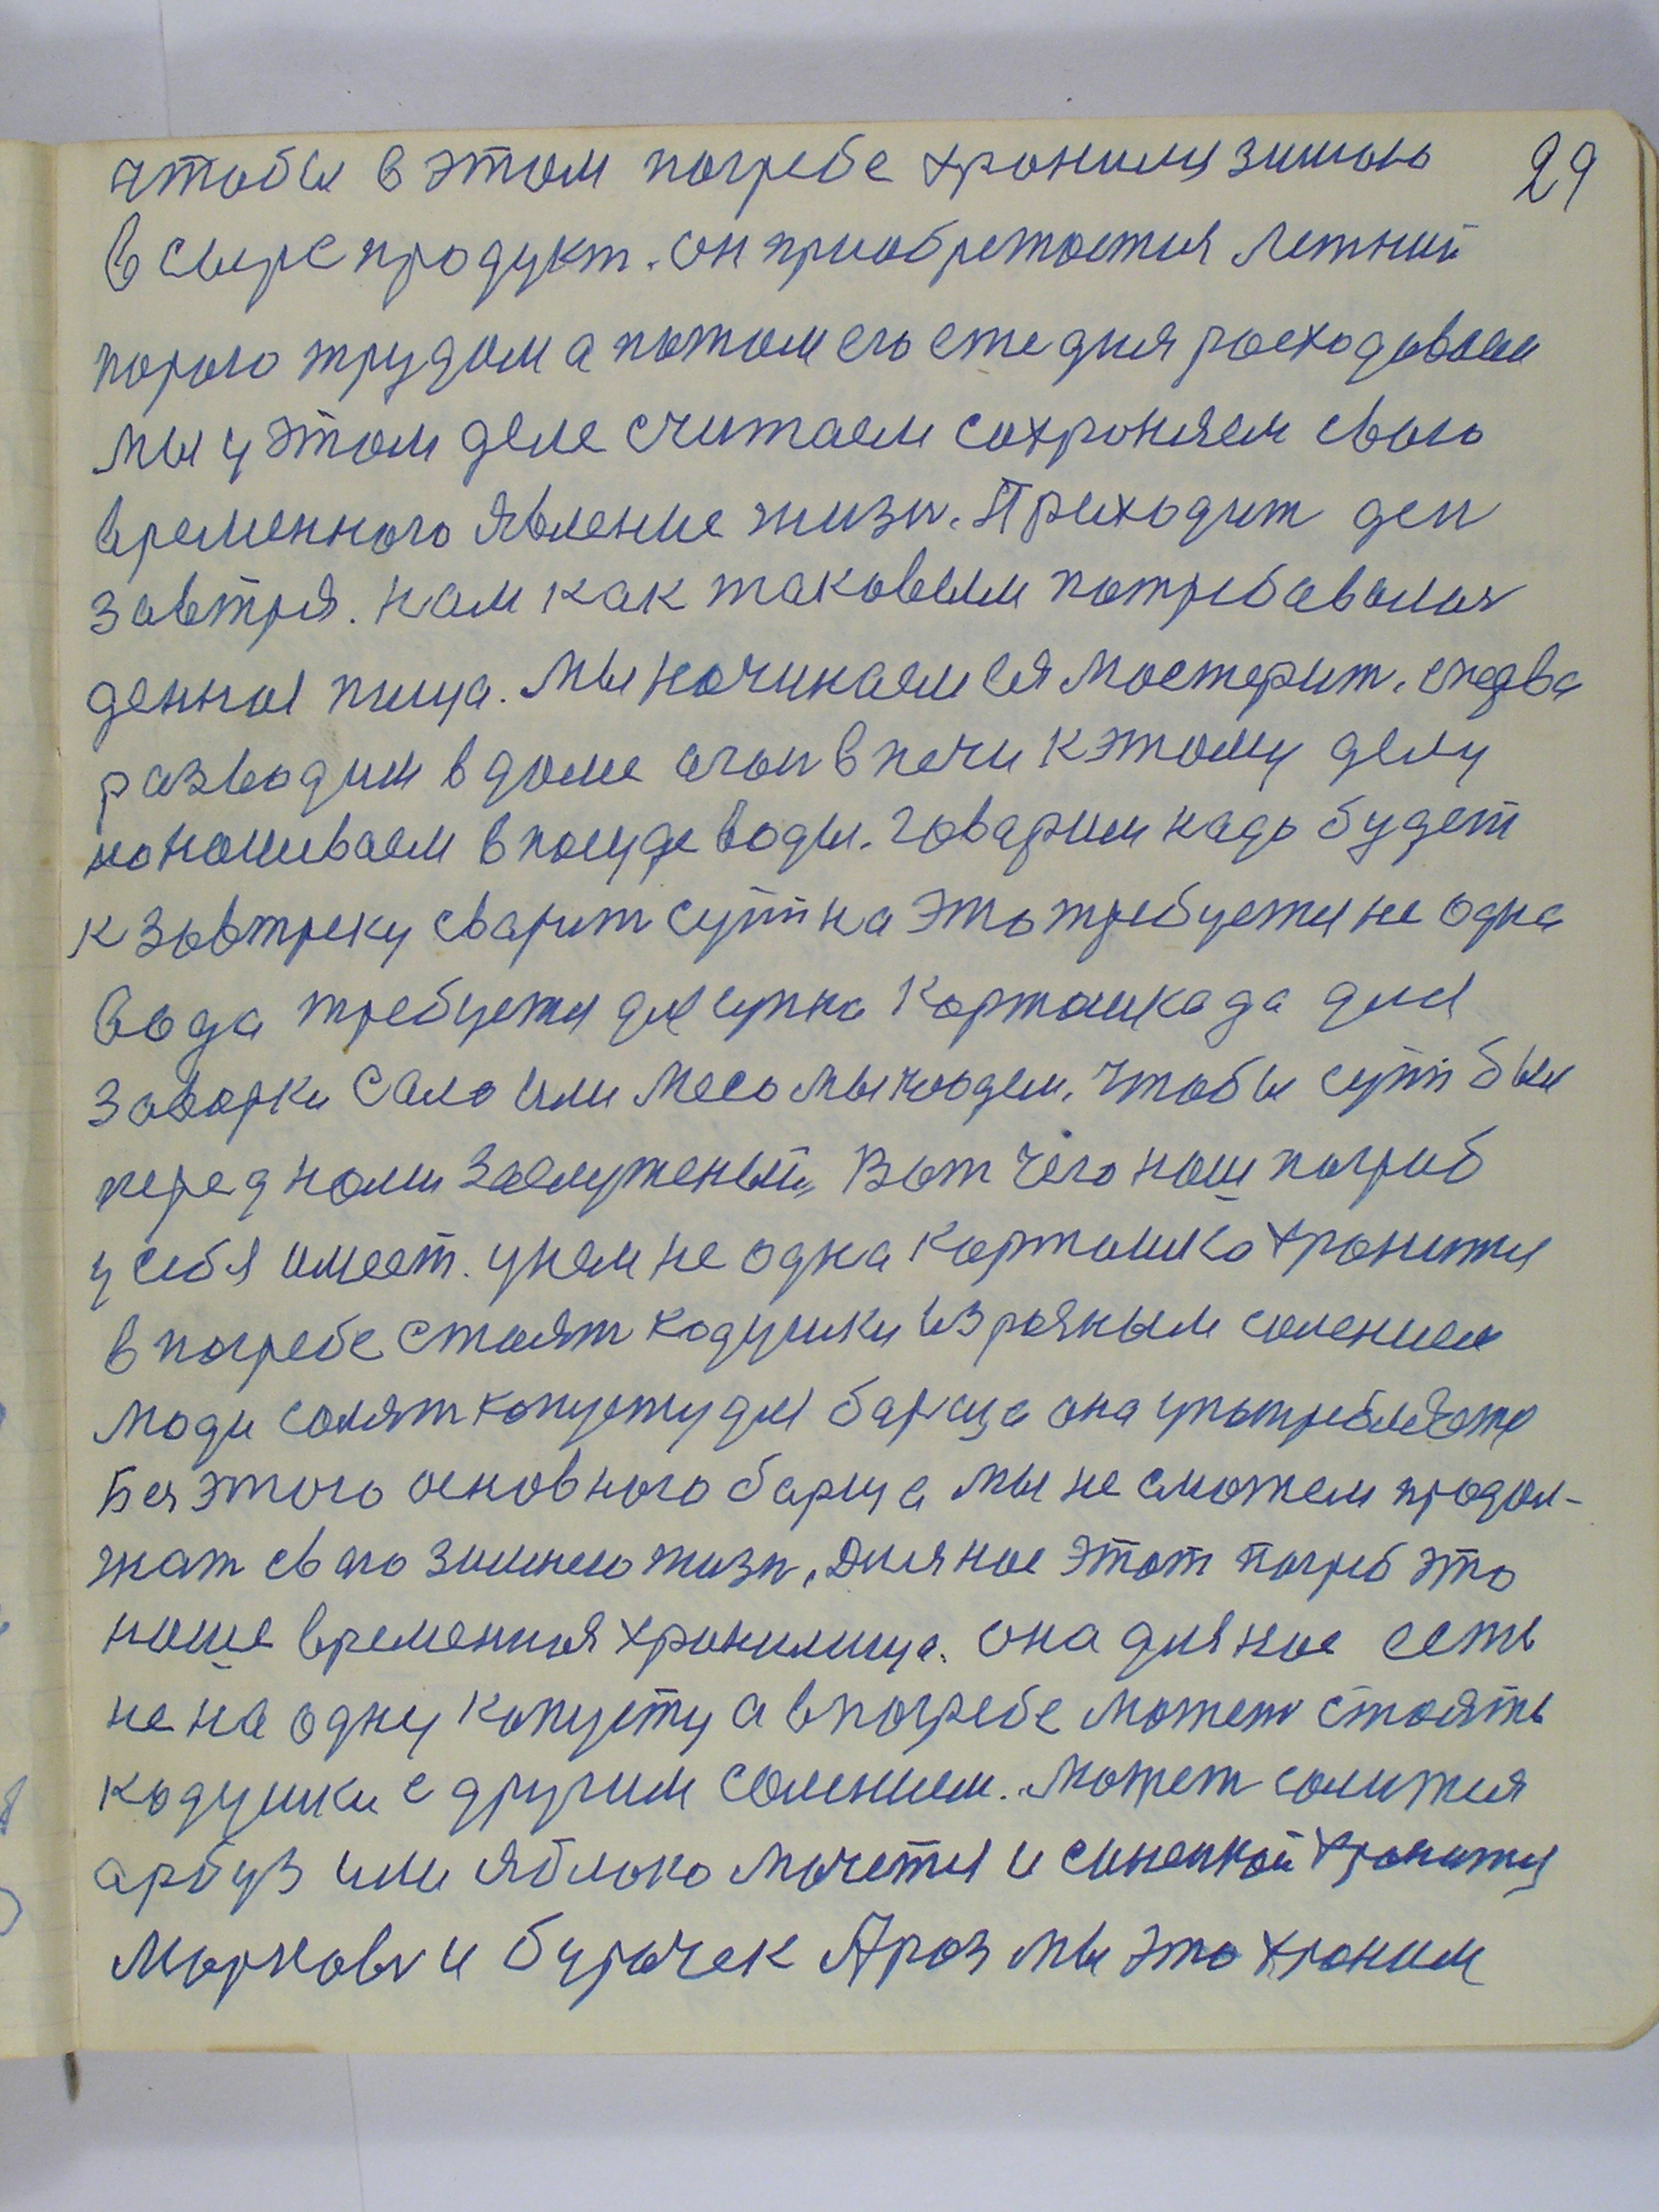 чтобы в этом погребе хронился зимою
29
в сыре продукт. он приобретоется летний
порою трудом а потом его стедня росходоваем
мы у этом деле считаем сохроняем свою
временного явление жизн. Преходит ден
завтря. нам как таковыем потребавался
денная пища. Мы ночинаемся мостерит. сперва
разводим в доме огон в печи к этому делу
нонашиваем в посуде воды. говарим надо будет
к зовтреку сварит суп на это требуется не одна
вода требуется для супна Картошка да для
заворки сало или месо мы кладем. чтобы суп был
перед нами заслуженый. Вот чего нош погриб
у себя имеет. у нем не одна картошка хронится
в погребе стоят кадушки из розным солением
люди солят копусту для барща она употребляется
Без этого основного барща мы не сможем продол-
жат свою зимнею жизн. Для нос этот погреб это
ноше временная хронилища. она для нос есть
не на одну копусту а в погребе может стоять
кодушки с другим солением. может солится
арбуз или яблоко мочется и синенкой хронится
Морковь и бурачек А роз мы это хроним